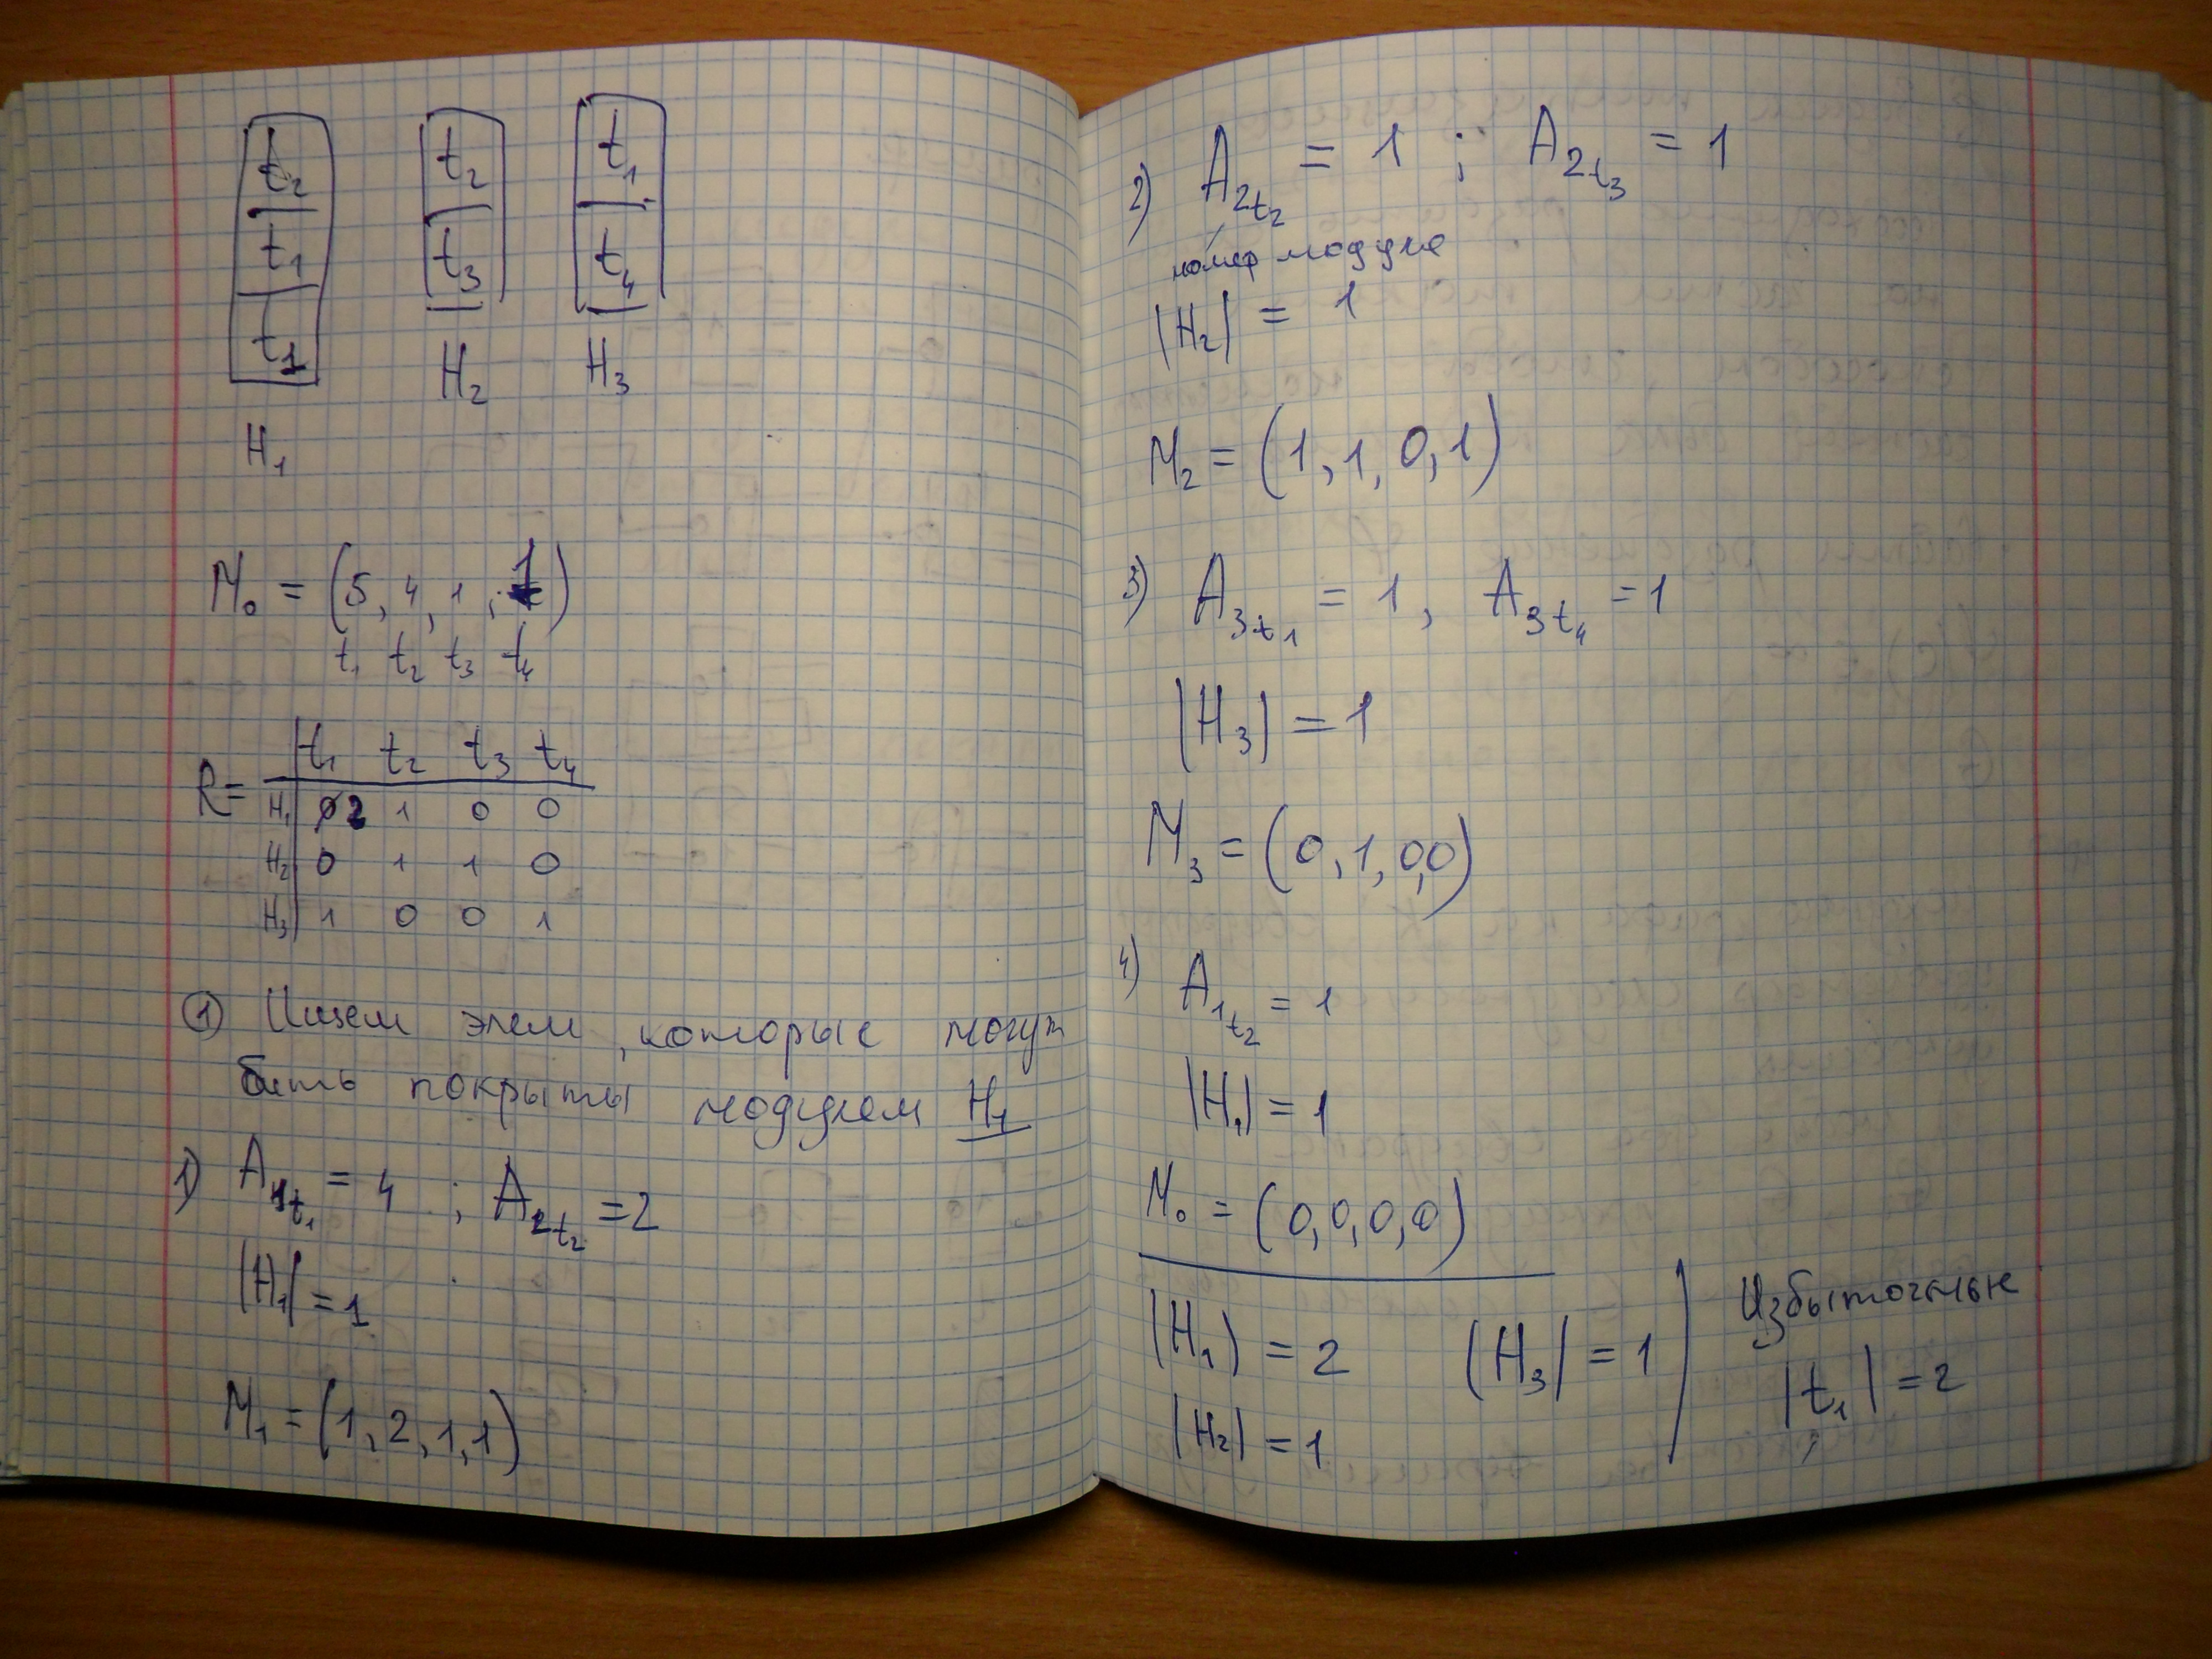 t₂ t₂ t₁
t₁ t₃ t₄
t₁
H₂ H₃
H₁
M₀ = (5, 4, 1, 1)
t₁ t₂ t₃ t₄
R= t₁ t₂ t₃ t₄
H₁ 2 1 0 0
H₂ 0 1 1 0
H₃ 1 0 0 1
① Ищем элем, которые могут
быть покрыты модулем H₁
1) A₁t₁ = 4 ; A t₂ = 2
|H₁| = 1
M₁ = (1, 2, 1, 1)
2) A₂t₂ = 1 ; A₂t₃ = 1
номер модуля
|H₂| = 1
M₂ = (1, 1, 0, 1)
3) A₃t₁ = 1, A₃t₄ = 1
|H₃| = 1
M₃ = (0, 1, 0, 0)
4) A₁t₂ = 1
|H₁| = 1
M₀ = (0, 0, 0, 0)
|H₁) = 2 (H₃| = 1 Избыточные
|H₂| = 1 |t₁| = 2